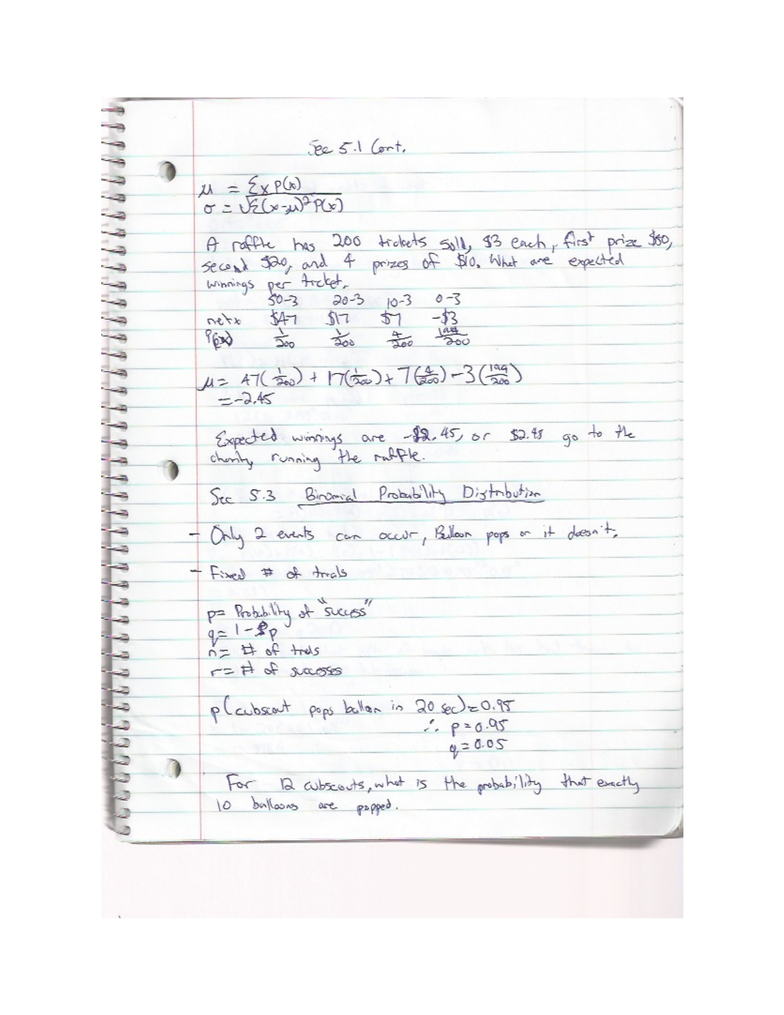 Sec 5.1 Cont.
μ = Σxp(x)
σ = √Σ(x-μ)²P(x)
A raffle has 200 tickets sold, $3 each, first prize $50,
second $20, and 4 prizes of $10. What are expected
winnings per ticket.
50-3 20-3 10-3 0-3
net x $47 $17 $7 -$3
P(x) 1/200 1/200 4/200 194/200
μ = 47(1/200) + 17(1/200) + 7(4/200) - 3(194/200)
= -2.45
Expected winnings are -$2.45, or $2.45 go to the
charity running the raffle.
Sec 5.3 Binomial Probability Distribution
- Only 2 events can occur, Balloon pops or it doesn't.
- Fixed # of trials
p = Probability of "success"
q = 1-p
n = # of trials
r = # of successes
p(cubscout pops ballon in 20 sec) = 0.95
∴ p = 0.95
q = 0.05
For 12 cubscouts, what is the probability that exactly
10 balloons are popped.